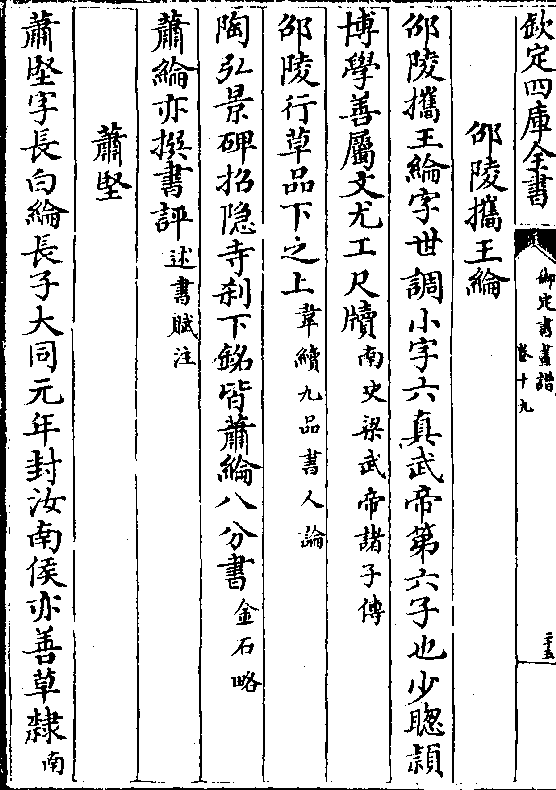 欽定四庫全書
御定書畫譜
卷十九
二十五
邵陵攜王綸
邵陵攜王綸字世調小字六真武帝第六子也少聰穎
博學善屬文尤工尺牘南史梁武帝諸子傳
邵陵行草品下之上韋續九品書人論
陶弘景碑招隐寺刹下銘皆蕭綸八分書金石略
蕭綸亦撰書評述書賦注
蕭堅
蕭堅字長白綸長子大同元年封汝南侯亦善草隸南